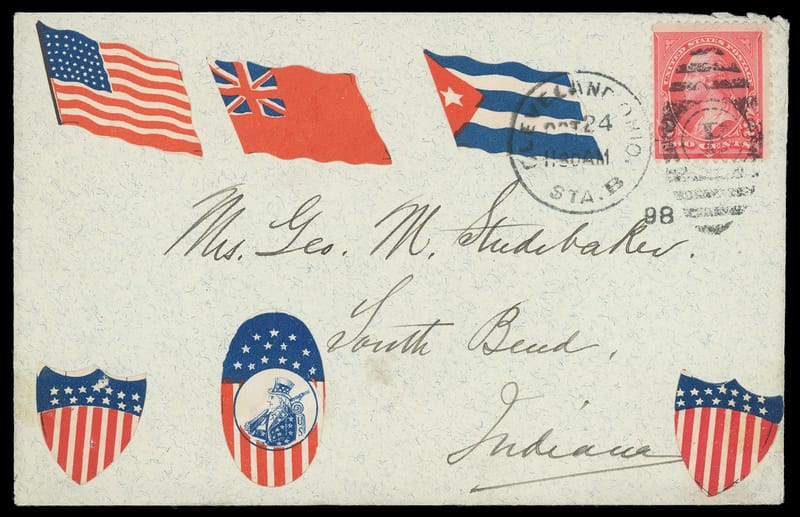 UNITED STATES POSTAGE
TWO CENTS
CLEVELAND, OHIO.
OCT 24
11 30 AM
STA. B
98
Mrs. Geo. M. Studebaker.
South Bend,
Indiana
U S